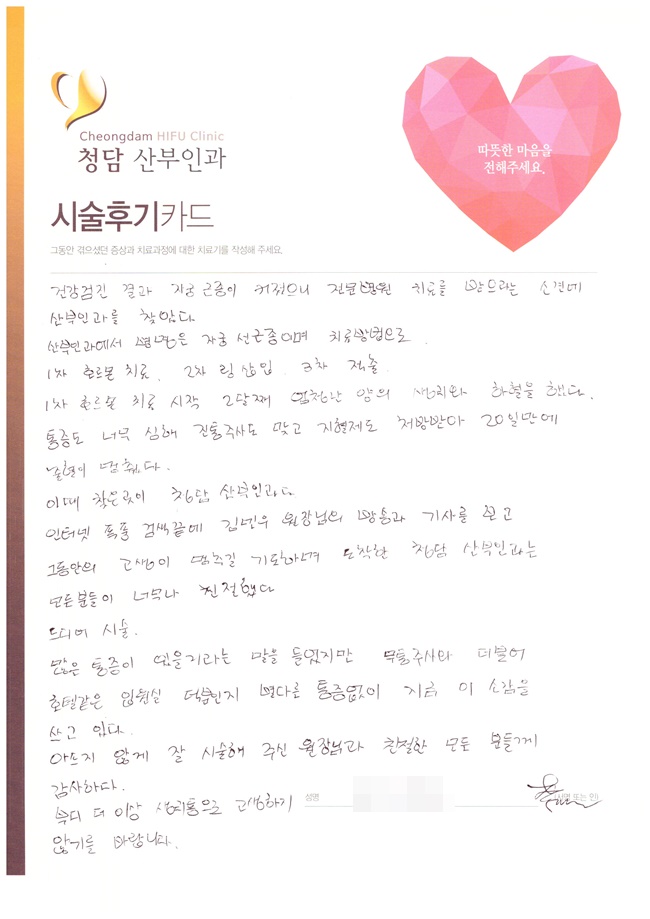 Cheongdam HIFU Clinic
청담 산부인과
따뜻한 마음을
전해주세요.
시술후기카드
그동안 겪으셨던 증상과 치료과정에 대한 치료기를 작성해 주세요.
건강검진 결과 자궁근종이 커졌으니 전문병원 치료를 받으라는 소견에
산부인과를 찾았다
산부인과에서 병명은 자궁 선근종이며 치료방법으로
1차 호르몬 치료. 2차 링 삽입. 3차 적출.
1차 호르몬 치료 시작 2달째 엄청난 양의 생리와 하혈을 했다.
통증도 너무 심해 진통주사도 맞고 지혈제도 처방받아 20일만에
출혈이 멈췄다.
이때 찾은곳이 청담 산부인과다
인터넷 폭풀 검색끝에 김민우 원장님의 방송과 기사를 보고
그동안의 고생이 멈추길 기도하며 도착한 청담 산부인과는
모든분들이 너무나 친절했다
드디어 시술.
많은 통증이 있을거라는 말을 들었지만 무통주사와 더불어
호텔같은 입원실 덕분인지 별다른 통증없이 지금 이 소감을
쓰고 있다.
아프지 않게 잘 시술해 주신 원장님과 친절한 모든 분들께
감사하다.
부디 더 이상 생리통으로 고생하기
않기를 바랍니다.
성명
(서명 또는 인)